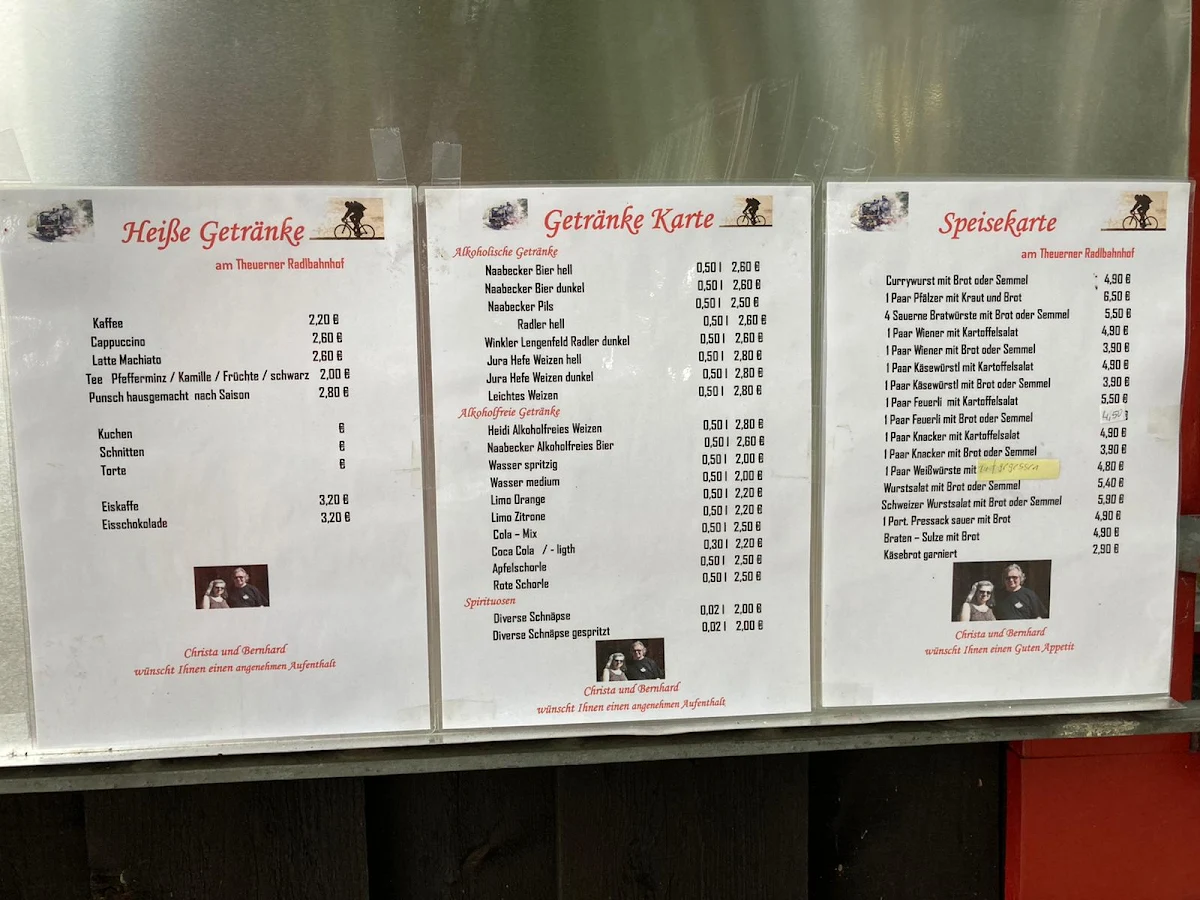 Heiße Getränke
am Theuerner Radlbahnhof
Kaffee 2,20 €
Cappuccino 2,60 €
Latte Machiato 2,60 €
Tee Pfefferminz / Kamille / Früchte / schwarz 2,00 €
Punsch hausgemacht nach Saison 2,80 €
Kuchen €
Schnitten €
Torte €
Eiskaffe 3,20 €
Eisschokolade 3,20 €
Christa und Bernhard
wünscht Ihnen einen angenehmen Aufenthalt
Getränke Karte
Alkoholische Getränke
Naabecker Bier hell 0,50 l 2,60 €
Naabecker Bier dunkel 0,50 l 2,60 €
Naabecker Pils 0,50 l 2,50 €
Radler hell 0,50 l 2,60 €
Winkler Lengenfeld Radler dunkel 0,50 l 2,60 €
Jura Hefe Weizen hell 0,50 l 2,80 €
Jura Hefe Weizen dunkel 0,50 l 2,80 €
Leichtes Weizen 0,50 l 2,80 €
Alkoholfreie Getränke
Heidi Alkoholfreies Weizen 0,50 l 2,80 €
Naabecker Alkoholfreies Bier 0,50 l 2,60 €
Wasser spritzig 0,50 l 2,00 €
Wasser medium 0,50 l 2,00 €
Limo Orange 0,50 l 2,20 €
Limo Zitrone 0,50 l 2,20 €
Cola – Mix 0,50 l 2,50 €
Coca Cola / - ligth 0,30 l 2,20 €
Apfelschorle 0,50 l 2,50 €
Rote Schorle 0,50 l 2,50 €
Spirituosen
Diverse Schnäpse 0,02 l 2,00 €
Diverse Schnäpse gespritzt 0,02 l 2,00 €
Christa und Bernhard
wünscht Ihnen einen angenehmen Aufenthalt
Speisekarte
am Theuerner Radlbahnhof
Currywurst mit Brot oder Semmel 4,90 €
1 Paar Pfälzer mit Kraut und Brot 6,50 €
4 Sauerne Bratwürste mit Brot oder Semmel 5,50 €
1 Paar Wiener mit Kartoffelsalat 4,90 €
1 Paar Wiener mit Brot oder Semmel 3,90 €
1 Paar Käsewürstl mit Kartoffelsalat 4,90 €
1 Paar Käsewürstl mit Brot oder Semmel 3,90 €
1 Paar Feuerli mit Kartoffelsalat 5,50 €
1 Paar Feuerli mit Brot oder Semmel 4,50 €
1 Paar Knacker mit Kartoffelsalat 4,90 €
1 Paar Knacker mit Brot oder Semmel 3,90 €
1 Paar Weißwürste mit 4,80 €
Wurstsalat mit Brot oder Semmel 5,40 €
Schweizer Wurstsalat mit Brot oder Semmel 5,90 €
1 Port. Pressack sauer mit Brot 4,90 €
Braten – Sulze mit Brot 4,90 €
Käsebrot garniert 2,90 €
Christa und Bernhard
wünscht Ihnen einen Guten Appetit